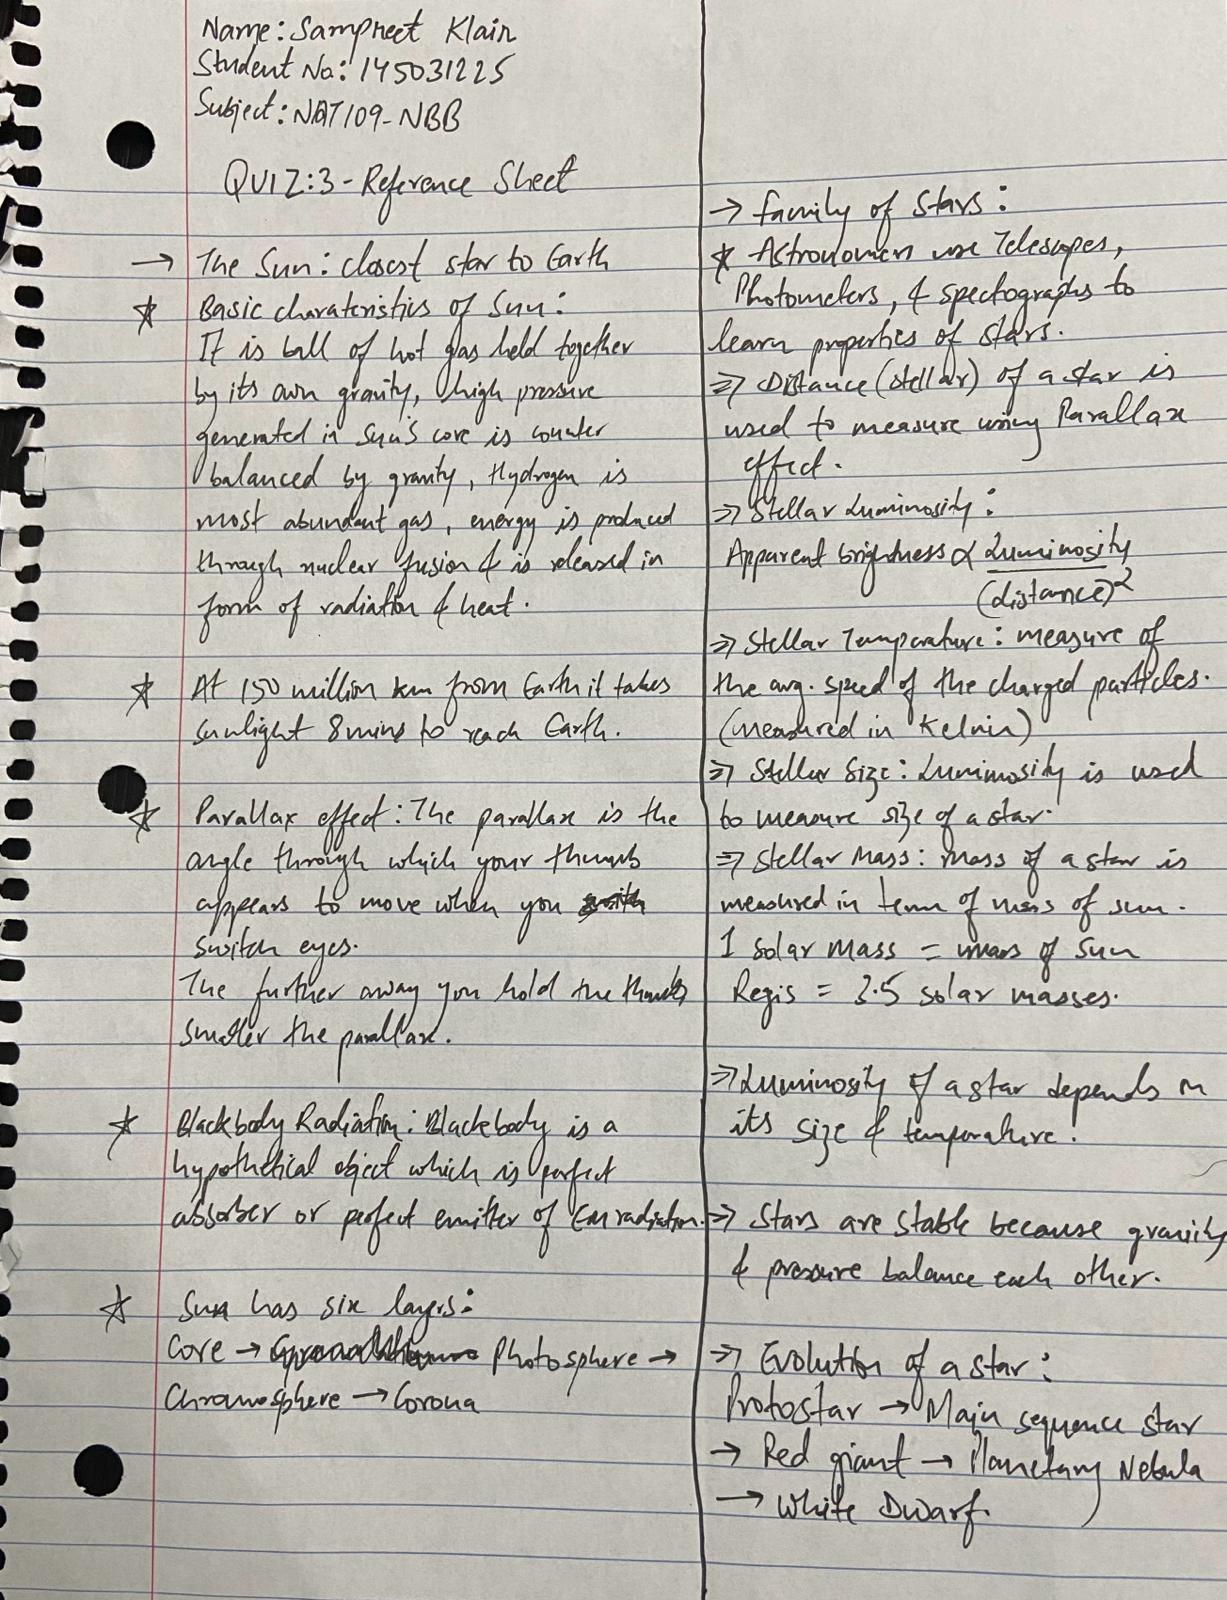 Name: Sampreet Klair
Student No: 145031225
Subject: NAT109-NBB
QUIZ:3 - Reference Sheet
→ The Sun: closest star to Earth
★ Basic charateristics of Sun:
It is ball of hot gas held together
by its own gravity, high pressure
generated in Sun's core is counter
balanced by gravity, Hydrogen is
most abundent gas, energy is produced
through nuclear fusion & is released in
form of radiation & heat.
★ At 150 million km from Earth it takes
sunlight 8 mins to reach Earth.
★ Parallax effect: The parallax is the
angle through which your thumb
appears to move when you
switch eyes.
The further away you hold the thumb,
smaller the parallax.
★ Blackbody Radiation: Blackbody is a
hypothetical object which is perfect
absorber or perfect emitter of EM radiation.
★ Sun has six layers:
Core → Photosphere →
Chromosphere → Corona
→ Family of Stars:
★ Astronomers use Telescopes,
Photometers, & spectographs to
learn properties of stars.
⇒ Distance (stellar) of a star is
used to measure using Parallax
effect.
⇒ Stellar Luminosity:
Apparent brightness ∝ Luminosity
(distance)²
⇒ Stellar Temperature: measure of
the avg. speed of the charged particles.
(measured in Kelvin)
⇒ Stellar Size: Luminosity is used
to measure size of a star.
⇒ Stellar Mass: mass of a star is
measured in term of mass of sun.
1 solar mass = mass of Sun
Regis = 3.5 solar masses.
⇒ Luminosity of a star depends on
its size & temperature.
⇒ Stars are stable because gravity
& pressure balance each other.
⇒ Evolution of a star:
Protostar → Main sequence star
→ Red giant → Planetary Nebula
→ White Dwarf.